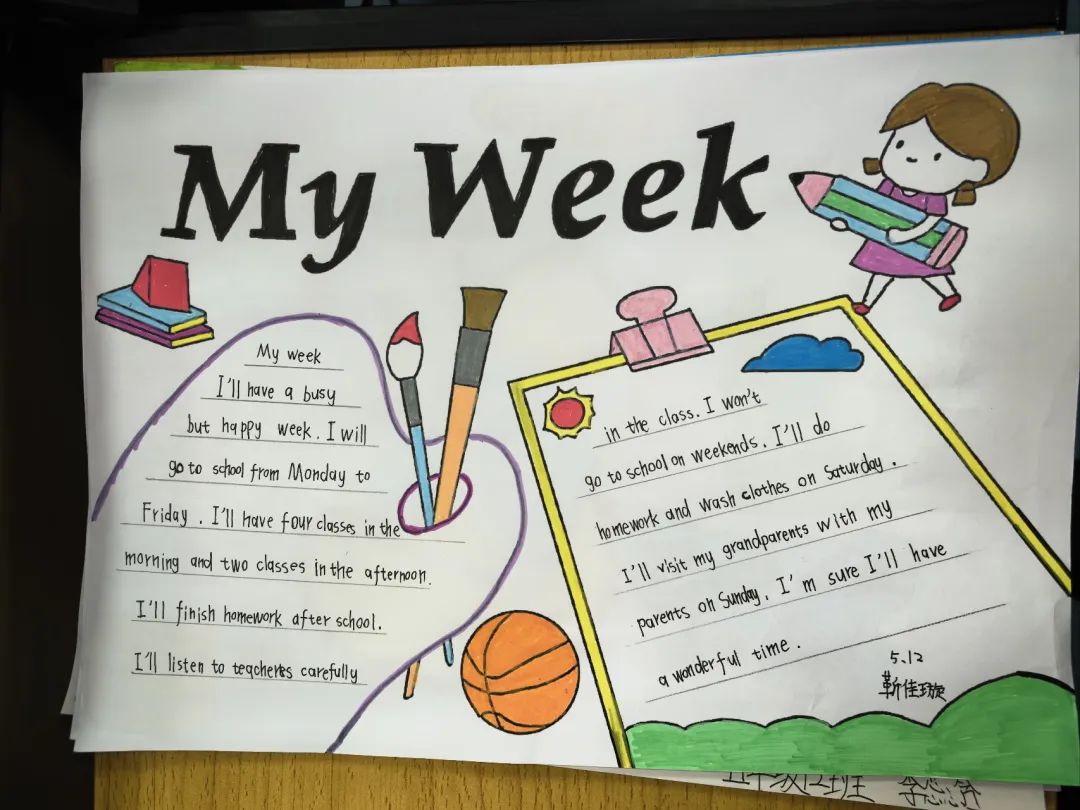 My Week
My week
I'll have a busy
but happy week. I will
go to school from Monday to
Friday. I'll have four classes in the
morning and two classes in the afternoon.
I'll finish homework after school.
I'll listen to teachers carefully
in the class. I won't
go to school on weekends. I'll do
homework and wash clothes on Saturday.
I'll visit my grandparents with my
parents on Sunday. I'm sure I'll have
a wonderful time.
5.12
靳佳璇
班